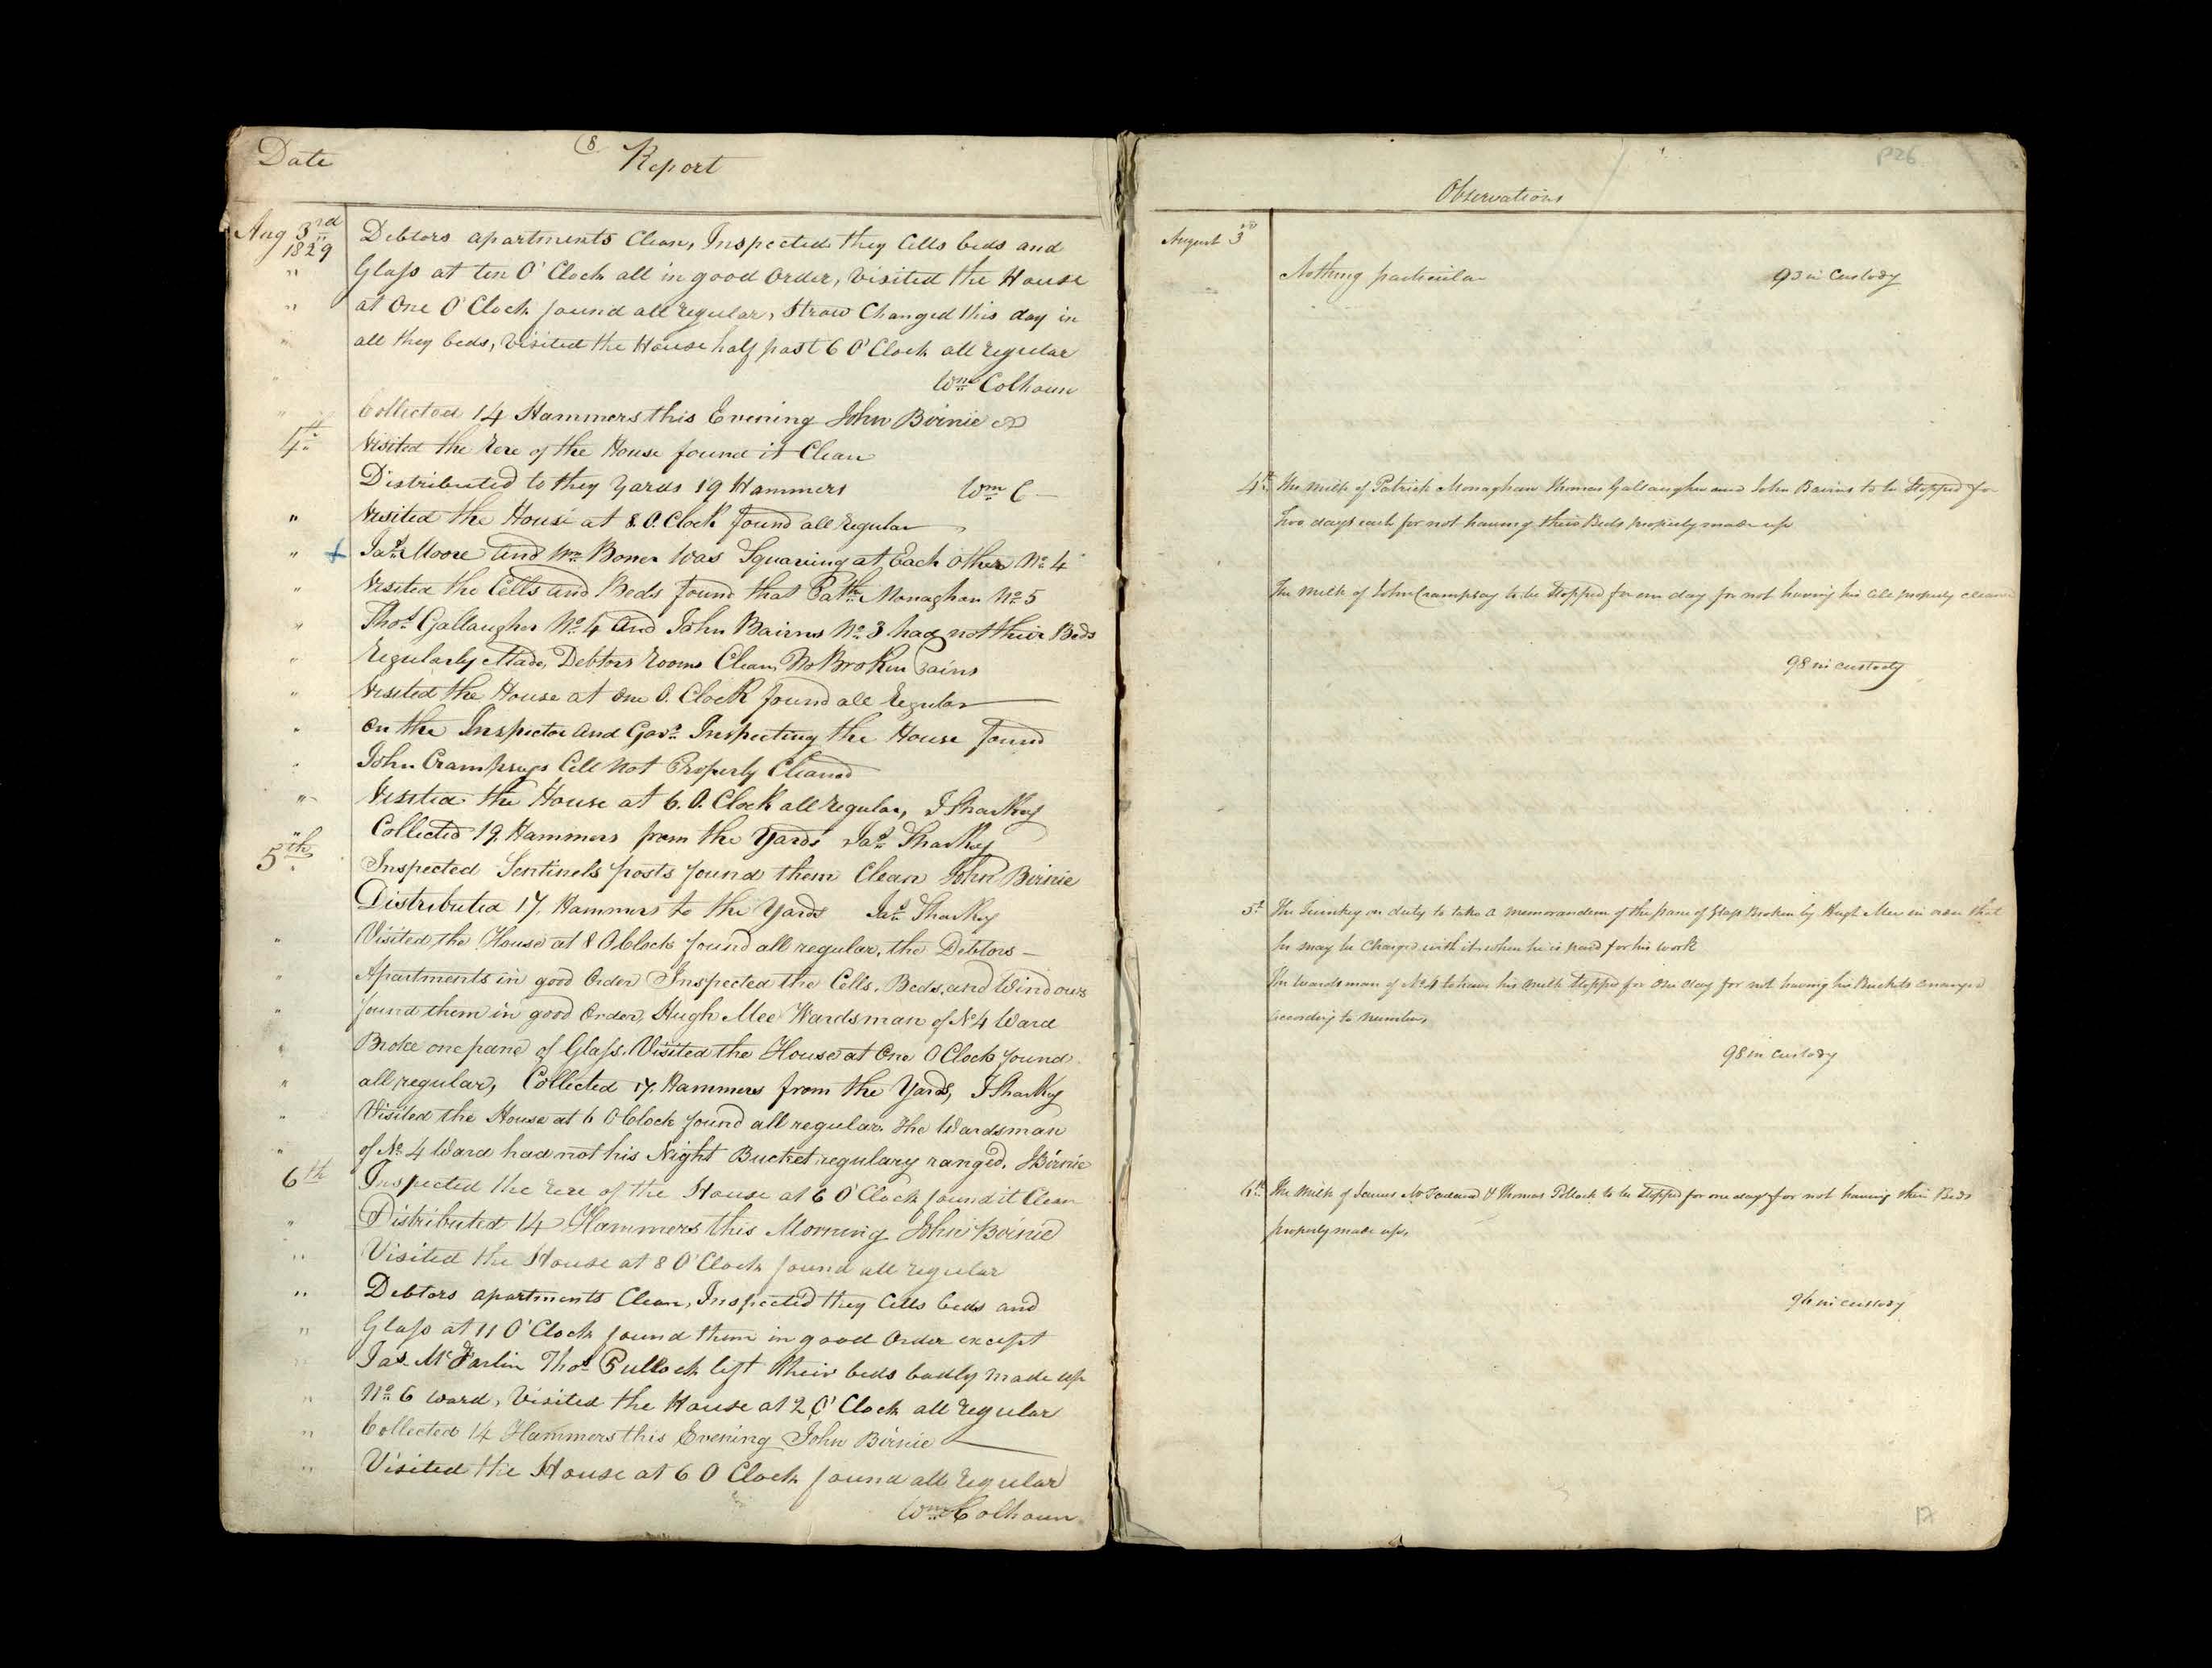 Date
(8
Report
Aug 3rd 1829
Debtors apartments Clean, Inspected they Cells beds and
Glass at ten O'Clock all in good Order, visited the House
at One O'Clock found all regular, Straw Changed this day in
all they beds, visited the House half past 6 O'Clock all regular
Wm Colhoun
Collected 14 Hammers this Evening John Birnie
4th Visited the rere of the House found it Clean
Distributed to they Yards 19 Hammers Wm C
" Visited the House at 8.O.Clock found all regular
" + Jas Moore and Wm Boner was Squaring at Each other No 4
" Visited the Cells and Beds found that Patk Monaghan No 5
" Thos Gallaugher No 4 and John Bairns No 3 had not their Beds
" Regularly Made, Debtors rooms Clean No Broken Pains
" Visited the House at one O.Clock found all regular
" On the Inspector and Govr Inspecting the House found
" John Crampseys Cell not Properly Cleaned
" Visited the House at 6.O.Clock all regular, J Sharkey
" Collected 19 Hammers from the Yards Jas Sharkey
5th Inspected Sentinels posts found them Clean John Birnie
Distributed 17. Hammers to the Yards Jas Sharkey
" Visited the House at 8 O.Clock found all regular, the Debtors
" Apartments in good Order Inspected the Cells, Beds, and Windows
" found them in good Order, Hugh Mee Wardsman of No 4 Ward
" Broke one pane of Glass. Visited the House at One O Clock found
" all regular, Collected 17. Hammers from the Yards, J Sharkey
" Visited the House at 6 O Clock found all regular. The Wardsman
" of No 4 Ward had not his Night Bucket regulary ranged. J Birnie
6th Inspected the rere of the House at 6 O'Clock found it Clean
" Distributed 14 Hammers this Morning John Birnie
" Visited the House at 8 O'Clock found all regular
" Debtors apartments Clean, Inspected they Cells beds and
" Glass at 11 O'Clock found them in good Order except
" Jas McFarlin Thos Pullock left their beds badly made up
" No 6 ward, Visited the House at 2 O'Clock all regular
" Collected 14 Hammers this Evening John Birnie
" Visited the House at 6 O Clock found all regular
Wm Colhoun
P26
Observations
August 3rd
Nothing particular 93 in Custody
4th The milk of Patrick Monaghan Thomas Gallaugher and John Bairns to be Stopped for
two days each for not having their Beds properly made up
The milk of John Crampsey to be Stopped for one day for not having his Cell properly cleaned
98 in custody
5th The Turnkey on duty to take a memorandum of the pane of Glass Broken by Hugh Mee in order that
he may be Charged with it when he is paid for his work
The wardsman of No 4 to have his milk Stopped for One day for not having his Buckets arranged
according to number,
98 in custody
6th The milk of James McFarland & Thomas Pollock to be Stopped for one day for not having their Beds
properly made up,
96 in custody
17